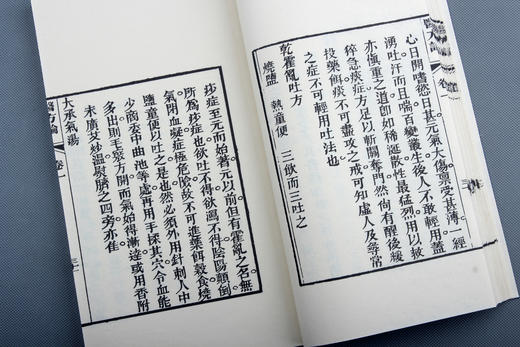 心日開嗜慾日甚元氣大傷稟受甚薄一經
湧吐汗而且喘百變叢生後人不敢輕用蓋
亦慎重之道卽如稀涎散性最猛烈用以救
猝急痰症方足以斬關奪門然尚有醒後緩
投藥餌痰不可盡攻之戒可知虛人及尋常
之症不可輕用吐法也
乾霍亂吐方
燒鹽 熱童便 三飲而三吐之
痧症至元而始著元以前但有霍亂之名無
所爲痧症也欲吐不得欲瀉不得陰陽顛倒
氣閉血凝症極危險故不可進藥餌穀食燒
鹽童便以吐之是也然必須外用針刺人中
少商委中曲池等處再用手採其穴令血能
多出則毛竅方開而氣始得漸達或用香附
末廣艾炒溫熨臍之四旁亦佳
大承氣湯
醫方論 卷一